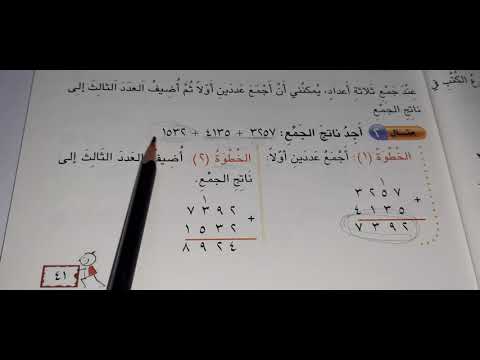 ع الكُتُبِ في
عِنْدَ جَمْعِ ثَلاثَةِ أَعدادٍ، يُمكِنُني أَنْ أَجْمَعَ عَدَدَينِ أَوَّلًا ثُمَّ أُضيفُ العَدَدَ الثّالِثَ إلى
ناتِجِ الجَمْعِ
مثال ٢ أَجِدُ ناتِجَ الجَمْعِ: ٣٢٥٧ + ٤١٣٥ + ١٥٣٢
الخُطْوَةُ (١): أَجْمَعُ عَدَدَينِ أَوَّلًا:
١
٣ ٢ ٥ ٧
٤ ١ ٣ ٥ +
٧ ٣ ٩ ٢
الخُطْوَةُ (٢) أُضيفُ العَدَدَ الثّالِثَ إلى
ناتِجِ الجَمْعِ.
١
٧ ٣ ٩ ٢
١ ٥ ٣ ٢ +
٨ ٩ ٢ ٤
٤١